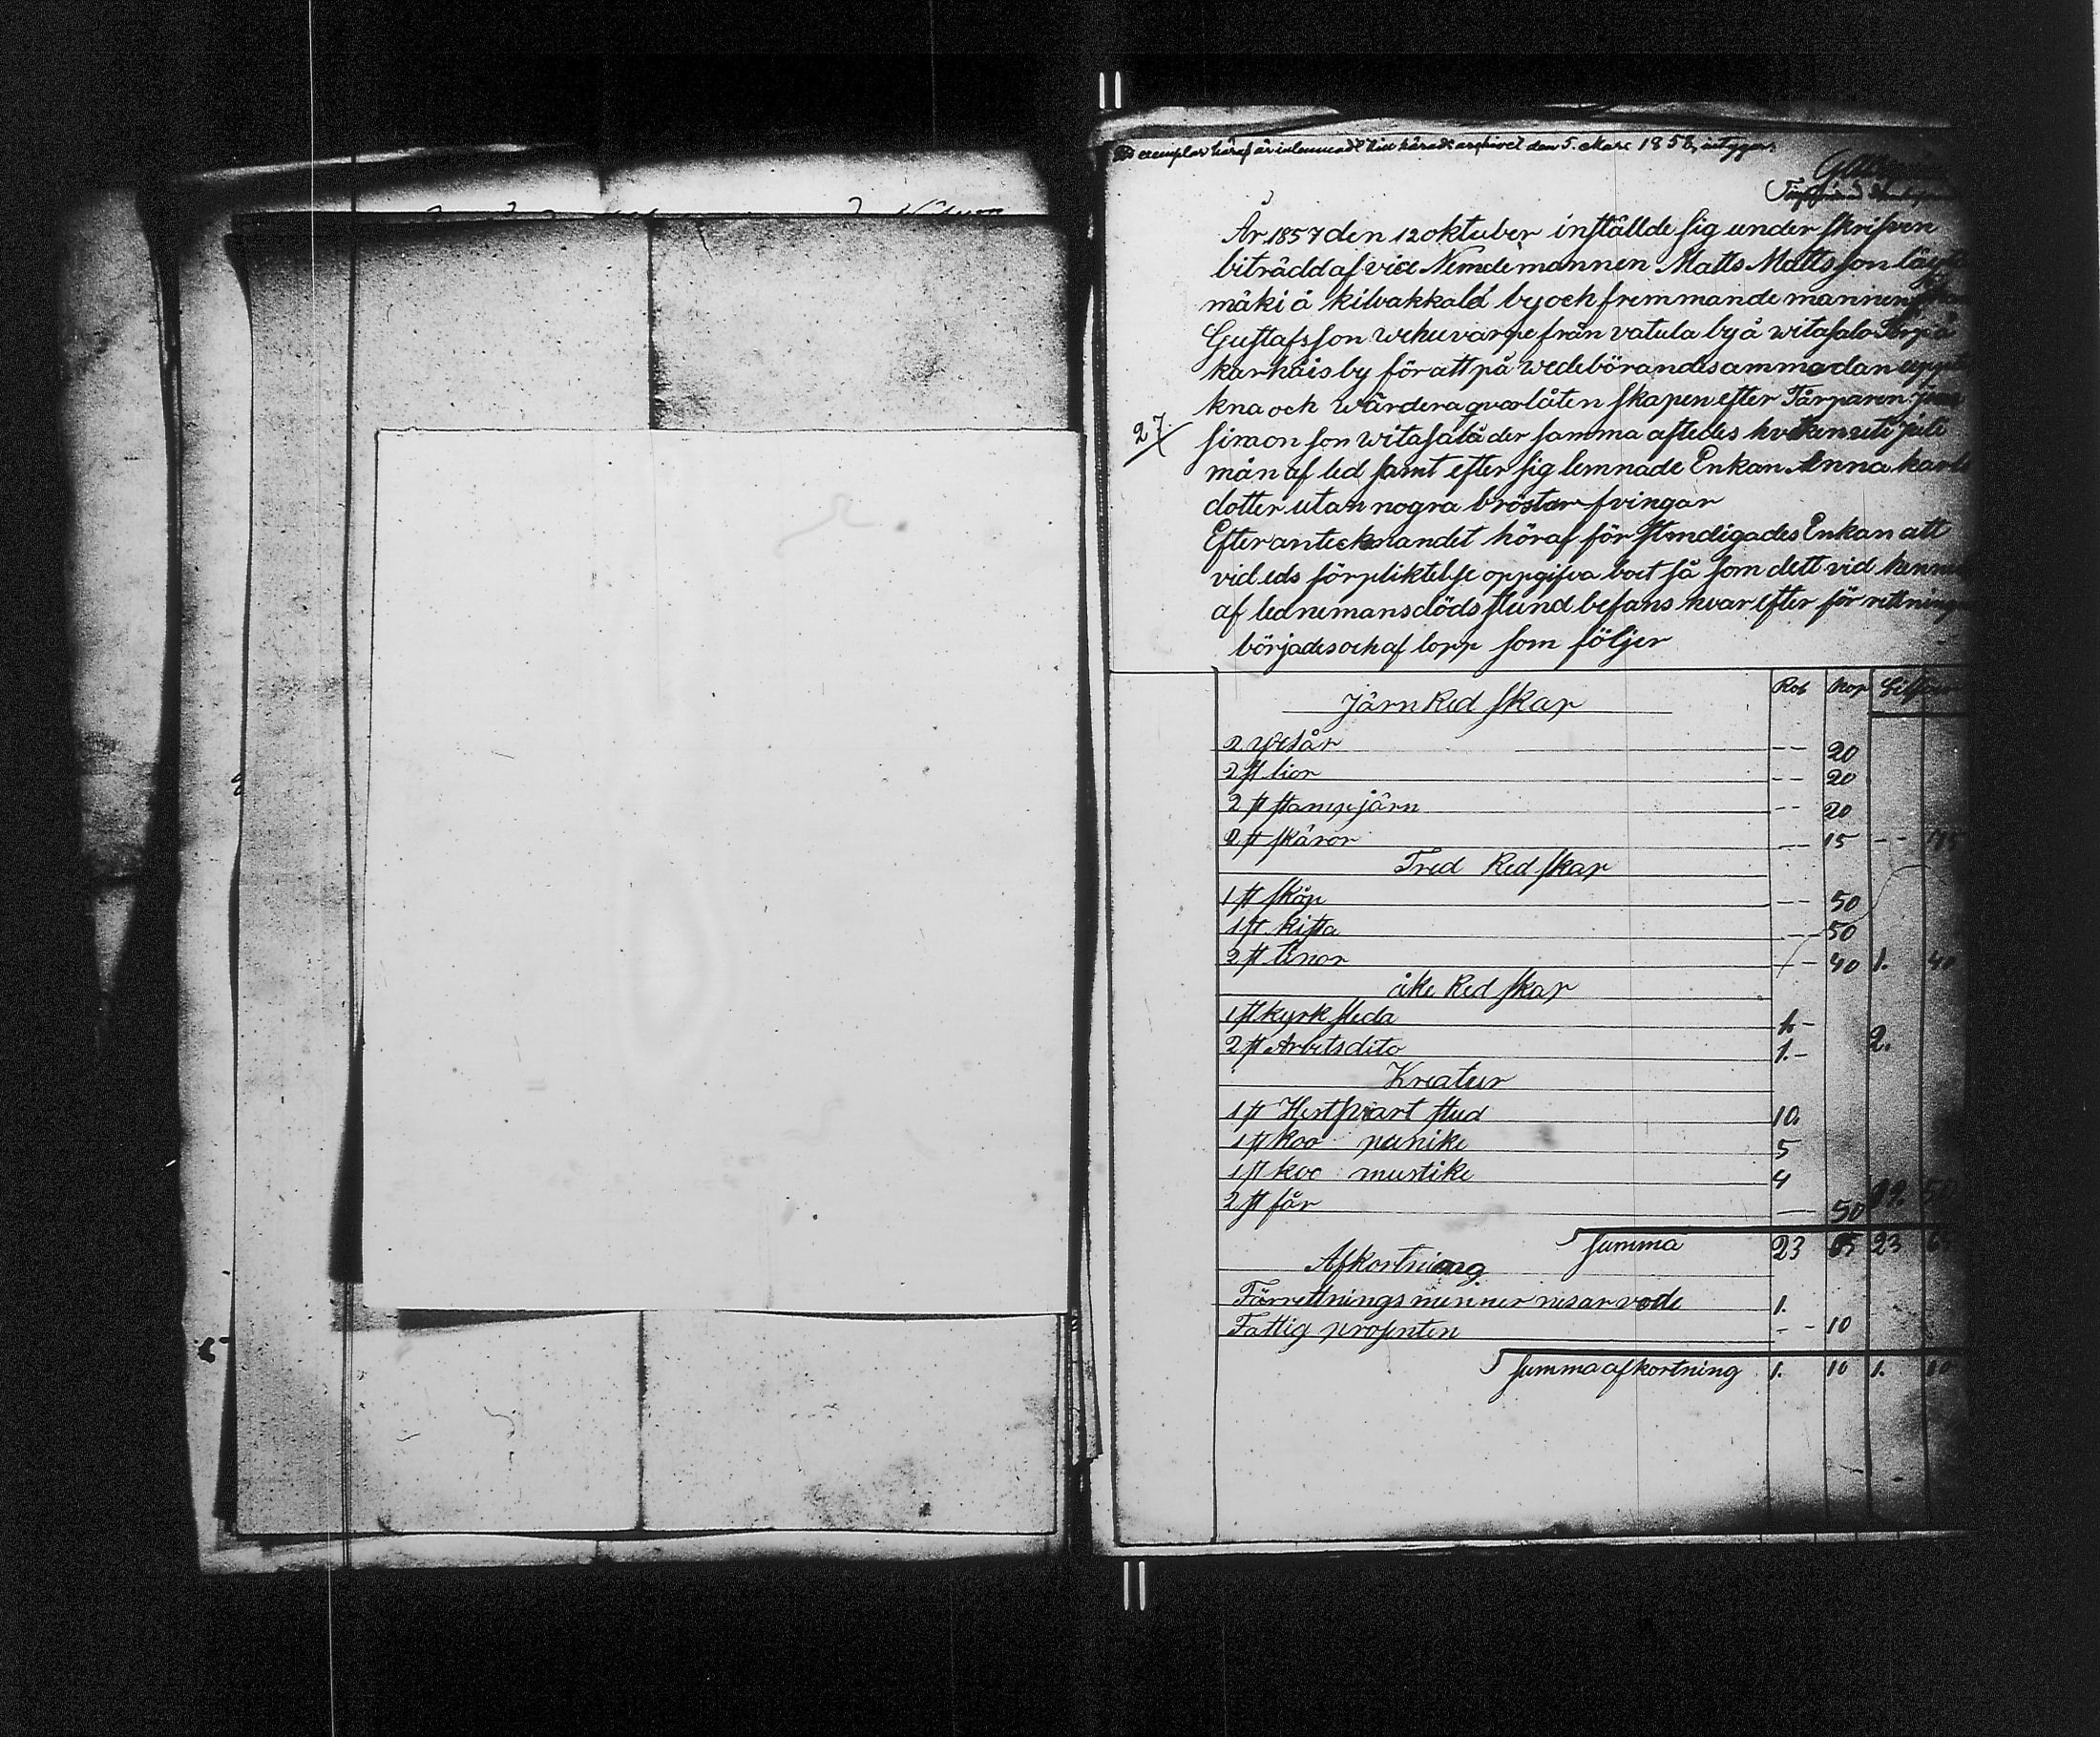 exemplar häraf är inlemnadt till härads archivet den 5. Mars 1858, intygar.
År 1857 den 12 oktuber instälde sig under skrifven
biträdd af vice Nemdemannen Matts Mattsson
mäki å kilvakkala by och fremmande mannen
Gustafsson Wehuvarpe från vatula by å witasalo Torp å
karhäis by för att på wedebörandes amma dan
kna och Wärdera qvarlåten skapen efter Tårparen
27
simon son witasala der samma aftedes hvilken uti juli
mån af led samt efter sig lemnade Enkan Anna
dotter utan nogra bröstarfvingar
Efter antecknandet höraf för stendigades Enkan att
vid eds förpliktelse oppgifva boet så som dett vid
af lednemans döds stund befans hvar efter för
börjades och af lopp som följer
Rob Kop
Järn Red skap
2 yxsår -- 20
2 st lior -- 20
2 st stanspjärn -- 20
2 st skäror -- 15 --
Tred Red skap
1 st sköp -- 50
1 st kista -- 50
2 st tinor -- 40 1. 40
åke Red skap
1 st kyrk sleda 1.-
2 st Arbetsdito 1.- 2.
Kreatur
1 st Hest svart stud 10.
1 st koo punike 5
1 st koo mustike 4
2 st får -- 50 50
Summa 23 65 23
Afkortning
Förrettnings menner nes arvode 1.
Fattig prosenten -- 10
Summa afkortning 1. 10 1. 10